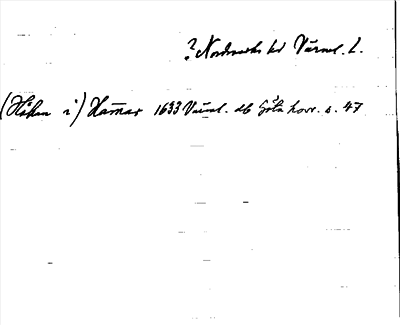 ? Nordmarks hd Värml. l.
(Håkan i) Hamar 1633 Värml. db Göta hovr. s. 47